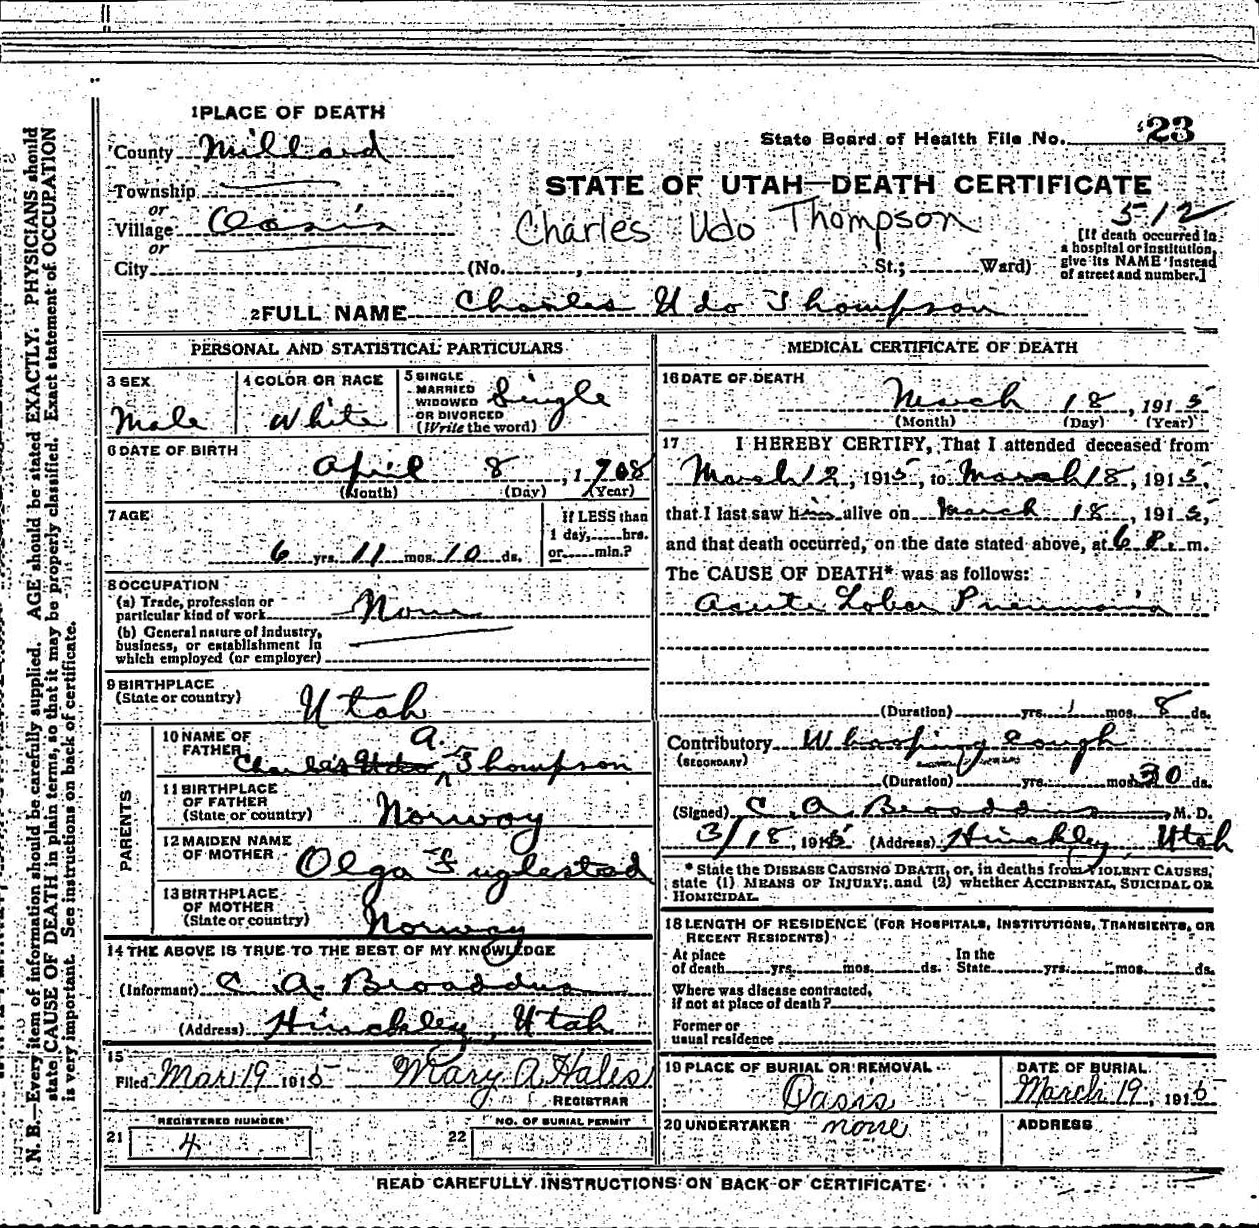 1 PLACE OF DEATH
County Millard
Township
or
Village Oasis
or
City (No. , St.; Ward)
State Board of Health File No. 23
STATE OF UTAH—DEATH CERTIFICATE
Charles Udo Thompson
512
[If death occurred in
a hospital or institution,
give its NAME instead
of street and number.]
2 FULL NAME Charles Udo Thompson
PERSONAL AND STATISTICAL PARTICULARS
3 SEX
Male
4 COLOR OR RACE
White
5 SINGLE
MARRIED
WIDOWED
OR DIVORCED
(Write the word)
Single
6 DATE OF BIRTH
April 8, 1908
(Month) (Day) (Year)
7 AGE
6 yrs. 11 mos. 10 ds.
If LESS than
1 day, hrs.
or min.?
8 OCCUPATION
(a) Trade, profession or
particular kind of work None
(b) General nature of industry,
business, or establishment in
which employed (or employer)
9 BIRTHPLACE
(State or country)
Utah
PARENTS
10 NAME OF
FATHER
Charles Udo A. Thompson
11 BIRTHPLACE
OF FATHER
(State or country)
Norway
12 MAIDEN NAME
OF MOTHER
Olga Fuglestad
13 BIRTHPLACE
OF MOTHER
(State or country)
Norway
14 THE ABOVE IS TRUE TO THE BEST OF MY KNOWLEDGE
(Informant) C. A. Broaddus
(Address) Hinckley, Utah
15
Filed Mar 19 1915 Mary A Hales
REGISTRAR
REGISTERED NUMBER
21 4
NO. OF BURIAL PERMIT
22
MEDICAL CERTIFICATE OF DEATH
16 DATE OF DEATH
March 18, 1915
(Month) (Day) (Year)
17 I HEREBY CERTIFY, That I attended deceased from
March 12, 1915, to March 18, 1915,
that I last saw him alive on March 18, 1915,
and that death occurred, on the date stated above, at 6 P. m.
The CAUSE OF DEATH* was as follows:
Acute Lobar Pneumonia
(Duration) yrs. mos. 8 ds.
Contributory Whooping Cough
(SECONDARY)
(Duration) yrs. mos. 30 ds.
(Signed) C. A. Broaddus M. D.
3/18, 1915 (Address) Hinckley, Utah
* State the DISEASE CAUSING DEATH, or, in deaths from VIOLENT CAUSES,
state (1) MEANS OF INJURY; and (2) whether ACCIDENTAL, SUICIDAL OR
HOMICIDAL.
18 LENGTH OF RESIDENCE (FOR HOSPITALS, INSTITUTIONS, TRANSIENTS, OR
RECENT RESIDENTS)
At place
of death yrs. mos. ds.
In the
State yrs. mos. ds.
Where was disease contracted,
if not at place of death?
Former or
usual residence
19 PLACE OF BURIAL OR REMOVAL
Oasis
DATE OF BURIAL
March 19, 1915
20 UNDERTAKER none
ADDRESS
READ CAREFULLY INSTRUCTIONS ON BACK OF CERTIFICATE
N. B.—Every item of information should be carefully supplied. AGE should be stated EXACTLY. PHYSICIANS should
state CAUSE OF DEATH in plain terms, so that it may be properly classified. Exact statement of OCCUPATION
is very important. See instructions on back of certificate.